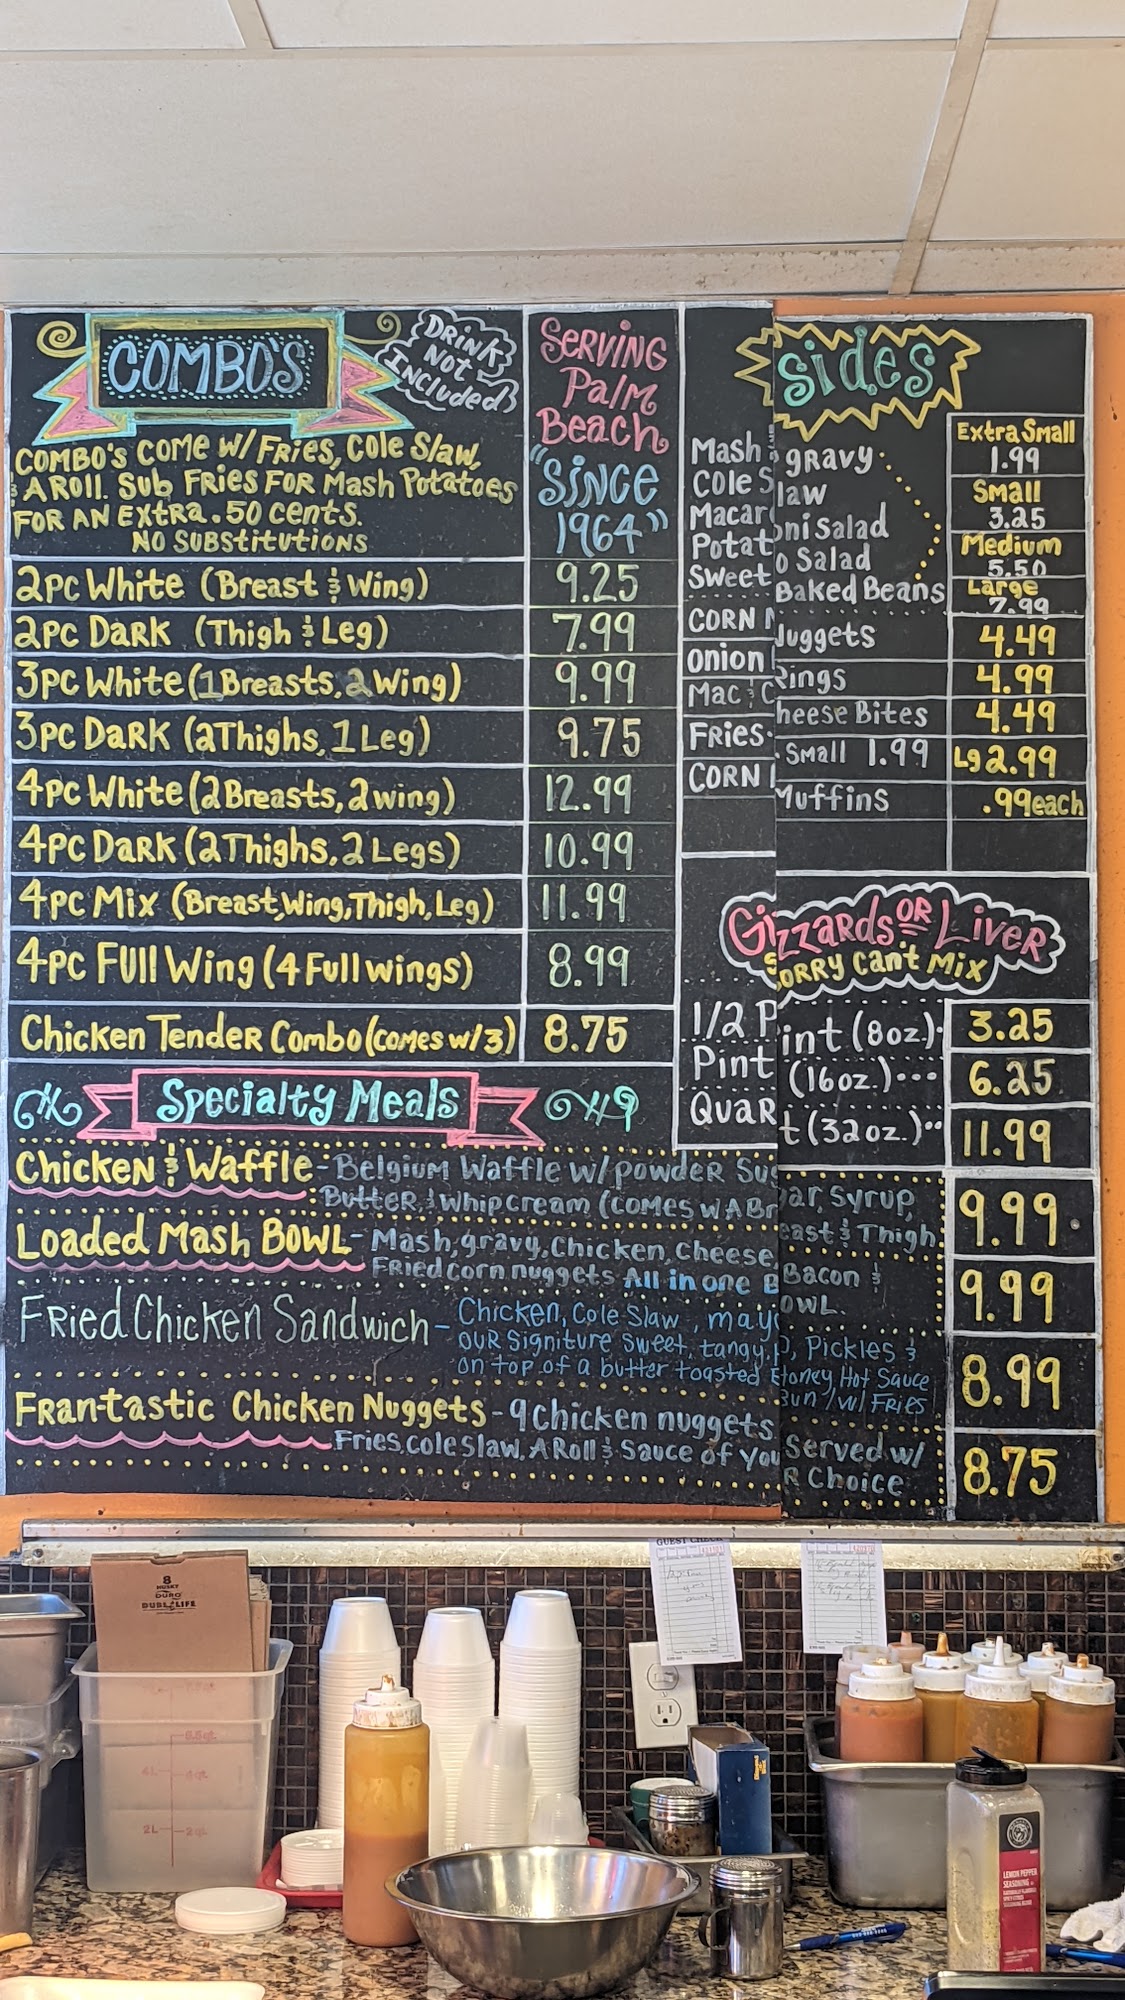 COMBO'S
DRINK
NOT
INCLUDED
COMBO'S COME W/ FRIES, COLE SLAW,
& A ROLL. SUB FRIES FOR MASH POTATOES
FOR AN EXTRA .50 CENTS.
NO SUBSTITUTIONS
SERVING
PALM
BEACH
"SINCE
1964"
2PC White (Breast & Wing) 9.25
2PC DARK (Thigh & Leg) 7.99
3PC White (1 Breasts, 2 Wing) 9.99
3PC DARK (2 Thighs, 1 Leg) 9.75
4PC White (2 Breasts, 2 wing) 12.99
4PC DARK (2 Thighs, 2 Legs) 10.99
4PC Mix (Breast, Wing, Thigh, Leg) 11.99
4PC FUll Wing (4 Full wings) 8.99
Chicken Tender Combo (comes w/3) 8.75
Sides
Mash & gravy
Cole Slaw
Macaroni Salad
Potato Salad
Sweet Baked Beans
Extra Small
1.99
Small
3.25
Medium
5.50
Large
7.99
CORN Nuggets 4.49
Onion Rings 4.99
Mac & Cheese Bites 4.49
FRIES · Small 1.99 Lg 2.99
CORN Muffins .99 each
Gizzards OR Liver
SORRY Can't Mix
1/2 Pint (8oz.) 3.25
Pint (16oz.) 6.25
Quart (32oz.) 11.99
Specialty Meals
Chicken & Waffle - Belgium Waffle w/ powder Sugar, Syrup,
Butter, & Whip Cream (comes w A Breast & Thigh 9.99
Loaded Mash Bowl - Mash, gravy, Chicken, Cheese Bacon &
FRied corn nuggets All in one BOWL. 9.99
Fried Chicken Sandwich - Chicken, Cole Slaw, mayo, Pickles &
OUR Signiture Sweet, tangy, Honey Hot Sauce
on top of a butter toasted Bun / w/ FRIES 8.99
Fran-tastic Chicken Nuggets - 9 Chicken nuggets Served w/
Fries, Cole Slaw, A Roll & Sauce of YouR Choice 8.75
8
HUSKY
DURO
DUBL LIFE
GUEST CHECK
4L
2L
LEMON PEPPER
SEASONING